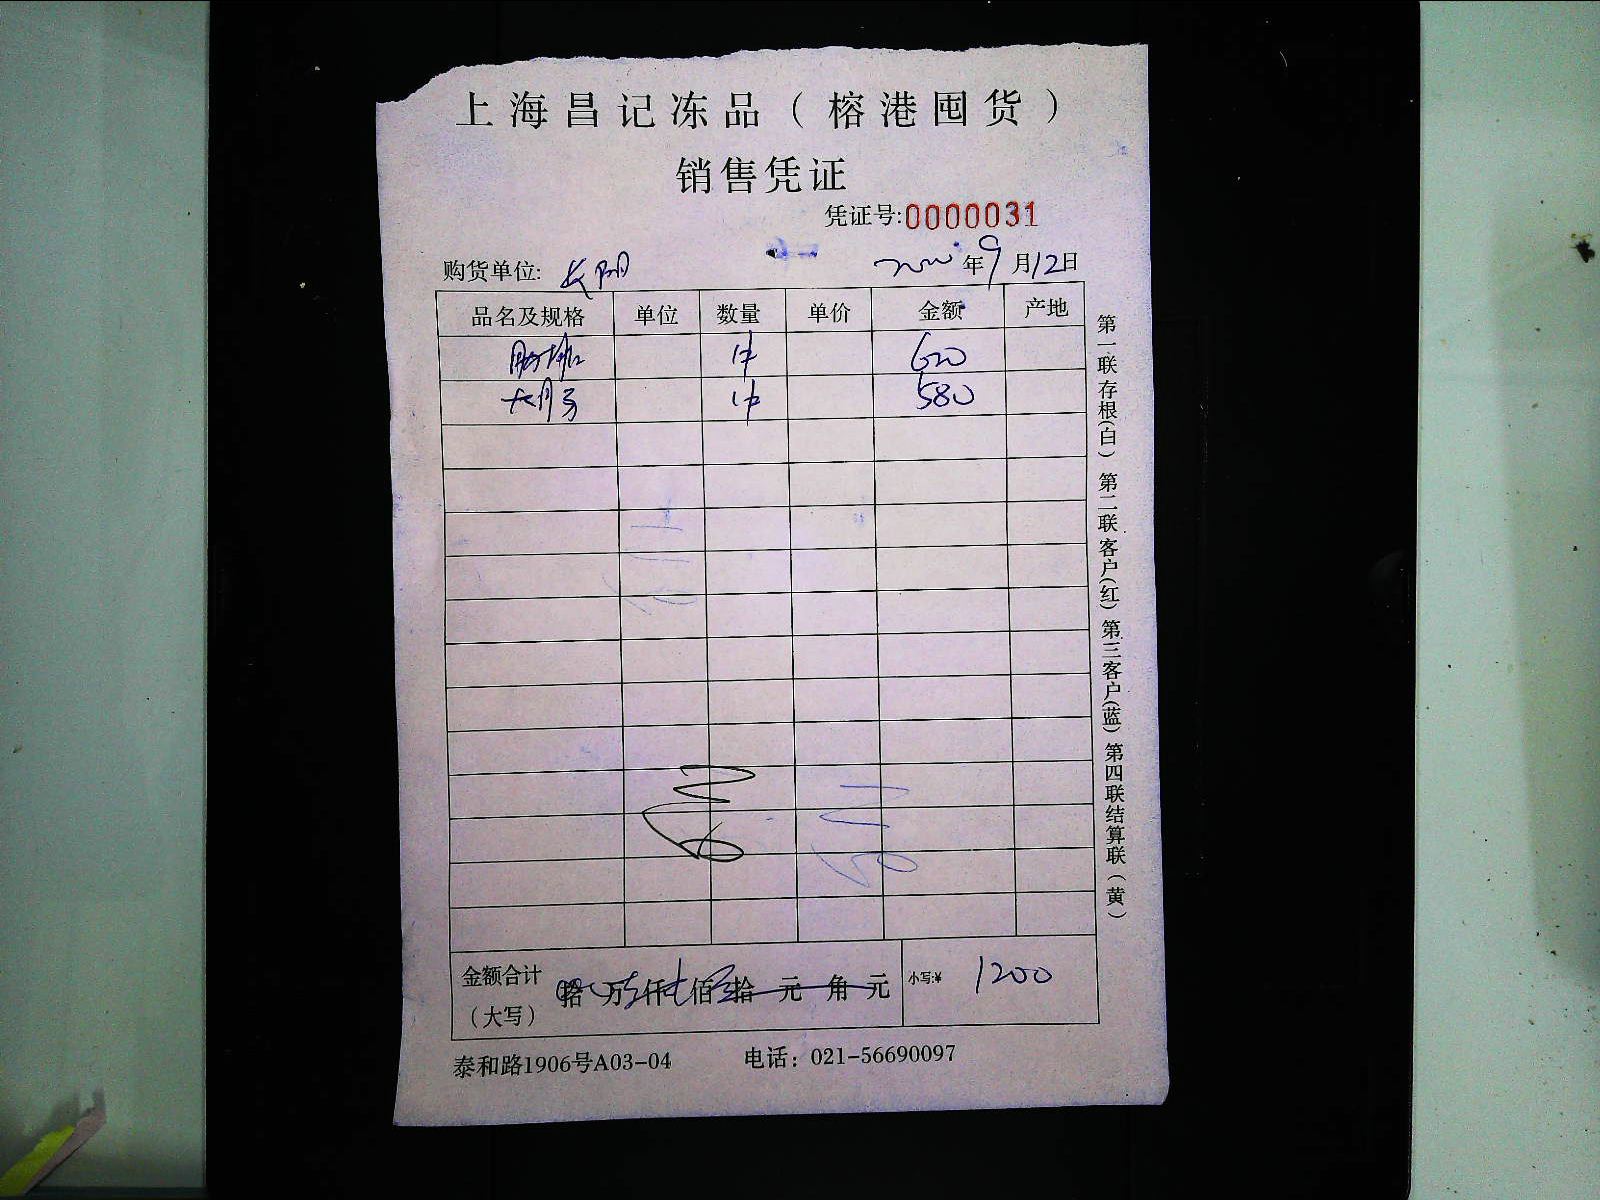 上海昌记冻品（榕港囤货）
销售凭证
凭证号:0000031
购货单位: 长阴 年9月12日
品名及规格 单位 数量 单价 金额 产地
1件 620
1件 580
金额合计（大写） 拾 万 仟 佰 拾 元 角 元 小写:¥ 1200
泰和路1906号A03-04 电话：021-56690097
第一联存根(白) 第二联客户(红) 第三客户(蓝) 第四联结算联(黄)